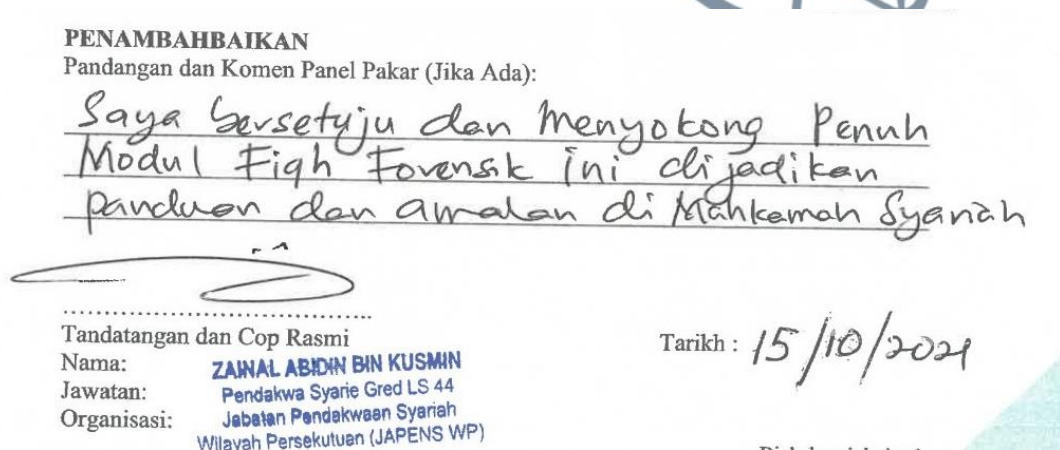 PENAMBAHBAIKAN
Pandangan dan Komen Panel Pakar (Jika Ada):
Saya bersetuju dan menyokong Penuh
Modul Fiqh Forensik ini dijadikan
panduan dan amalan di Mahkamah Syariah
Tandatangan dan Cop Rasmi
Tarikh : 15/10/2021
Nama: ZAINAL ABIDIN BIN KUSMIN
Jawatan: Pendakwa Syarie Gred LS 44
Organisasi: Jabatan Pendakwaan Syariah
Wilayah Persekutuan (JAPENS WP)